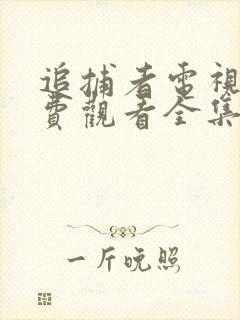 追捕者電視
費觀看全集
一斤晚照